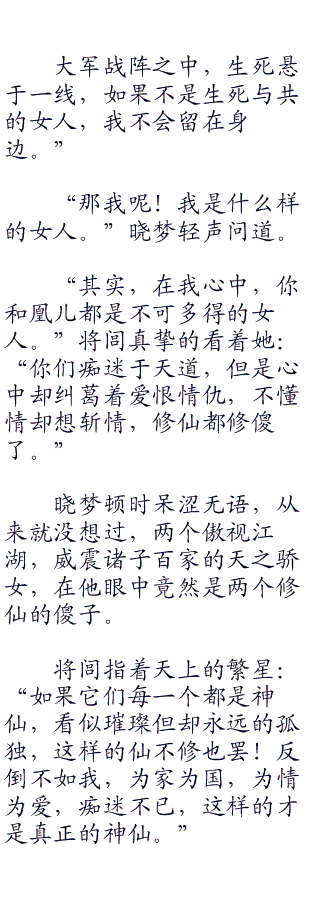 大军战阵之中，生死悬
于一线，如果不是生死与共
的女人，我不会留在身
边。”
“那我呢！我是什么样
的女人。”晓梦轻声问道。
“其实，在我心中，你
和凰儿都是不可多得的女
人。”将闾真挚的看着她：
“你们痴迷于天道，但是心
中却纠葛着爱恨情仇，不懂
情却想斩情，修仙都修傻
了。”
晓梦顿时呆涩无语，从
来就没想过，两个傲视江
湖，威震诸子百家的天之骄
女，在他眼中竟然是两个修
仙的傻子。
将闾指着天上的繁星：
“如果它们每一个都是神
仙，看似璀璨但却永远的孤
独，这样的仙不修也罢！反
倒不如我，为家为国，为情
为爱，痴迷不已，这样的才
是真正的神仙。”